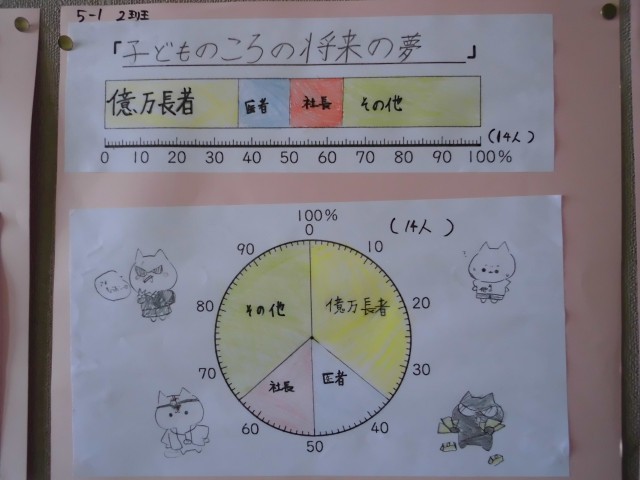 5-1 2班
「子どものころの将来の夢」
億万長者 医者 社長 その他
(14人)
0 10 20 30 40 50 60 70 80 90 100%
100%
0
(14人)
90 10
80 20
70 30
60 40
50
その他 億万長者
社長 医者